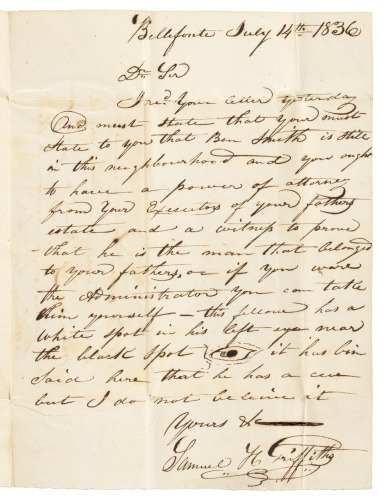 Bellefonte July 14th 1836
Dr. Sir
I recd. your letter yesterday
And must state that your must
state to you that Ben Smith is still
in this neighbourhood and you ought
to have a power of attorney
from your Executors of your fathers
estate and a witness to prove
that he is the man that belonged
to your fathers, or if you ware
the Administrator you can take
him yourself – this fellow has a
white spot in his left eye near
the black spot it has bin
said here that he has a
but I do not beleive it
Yours &
Samuel H. Griffith